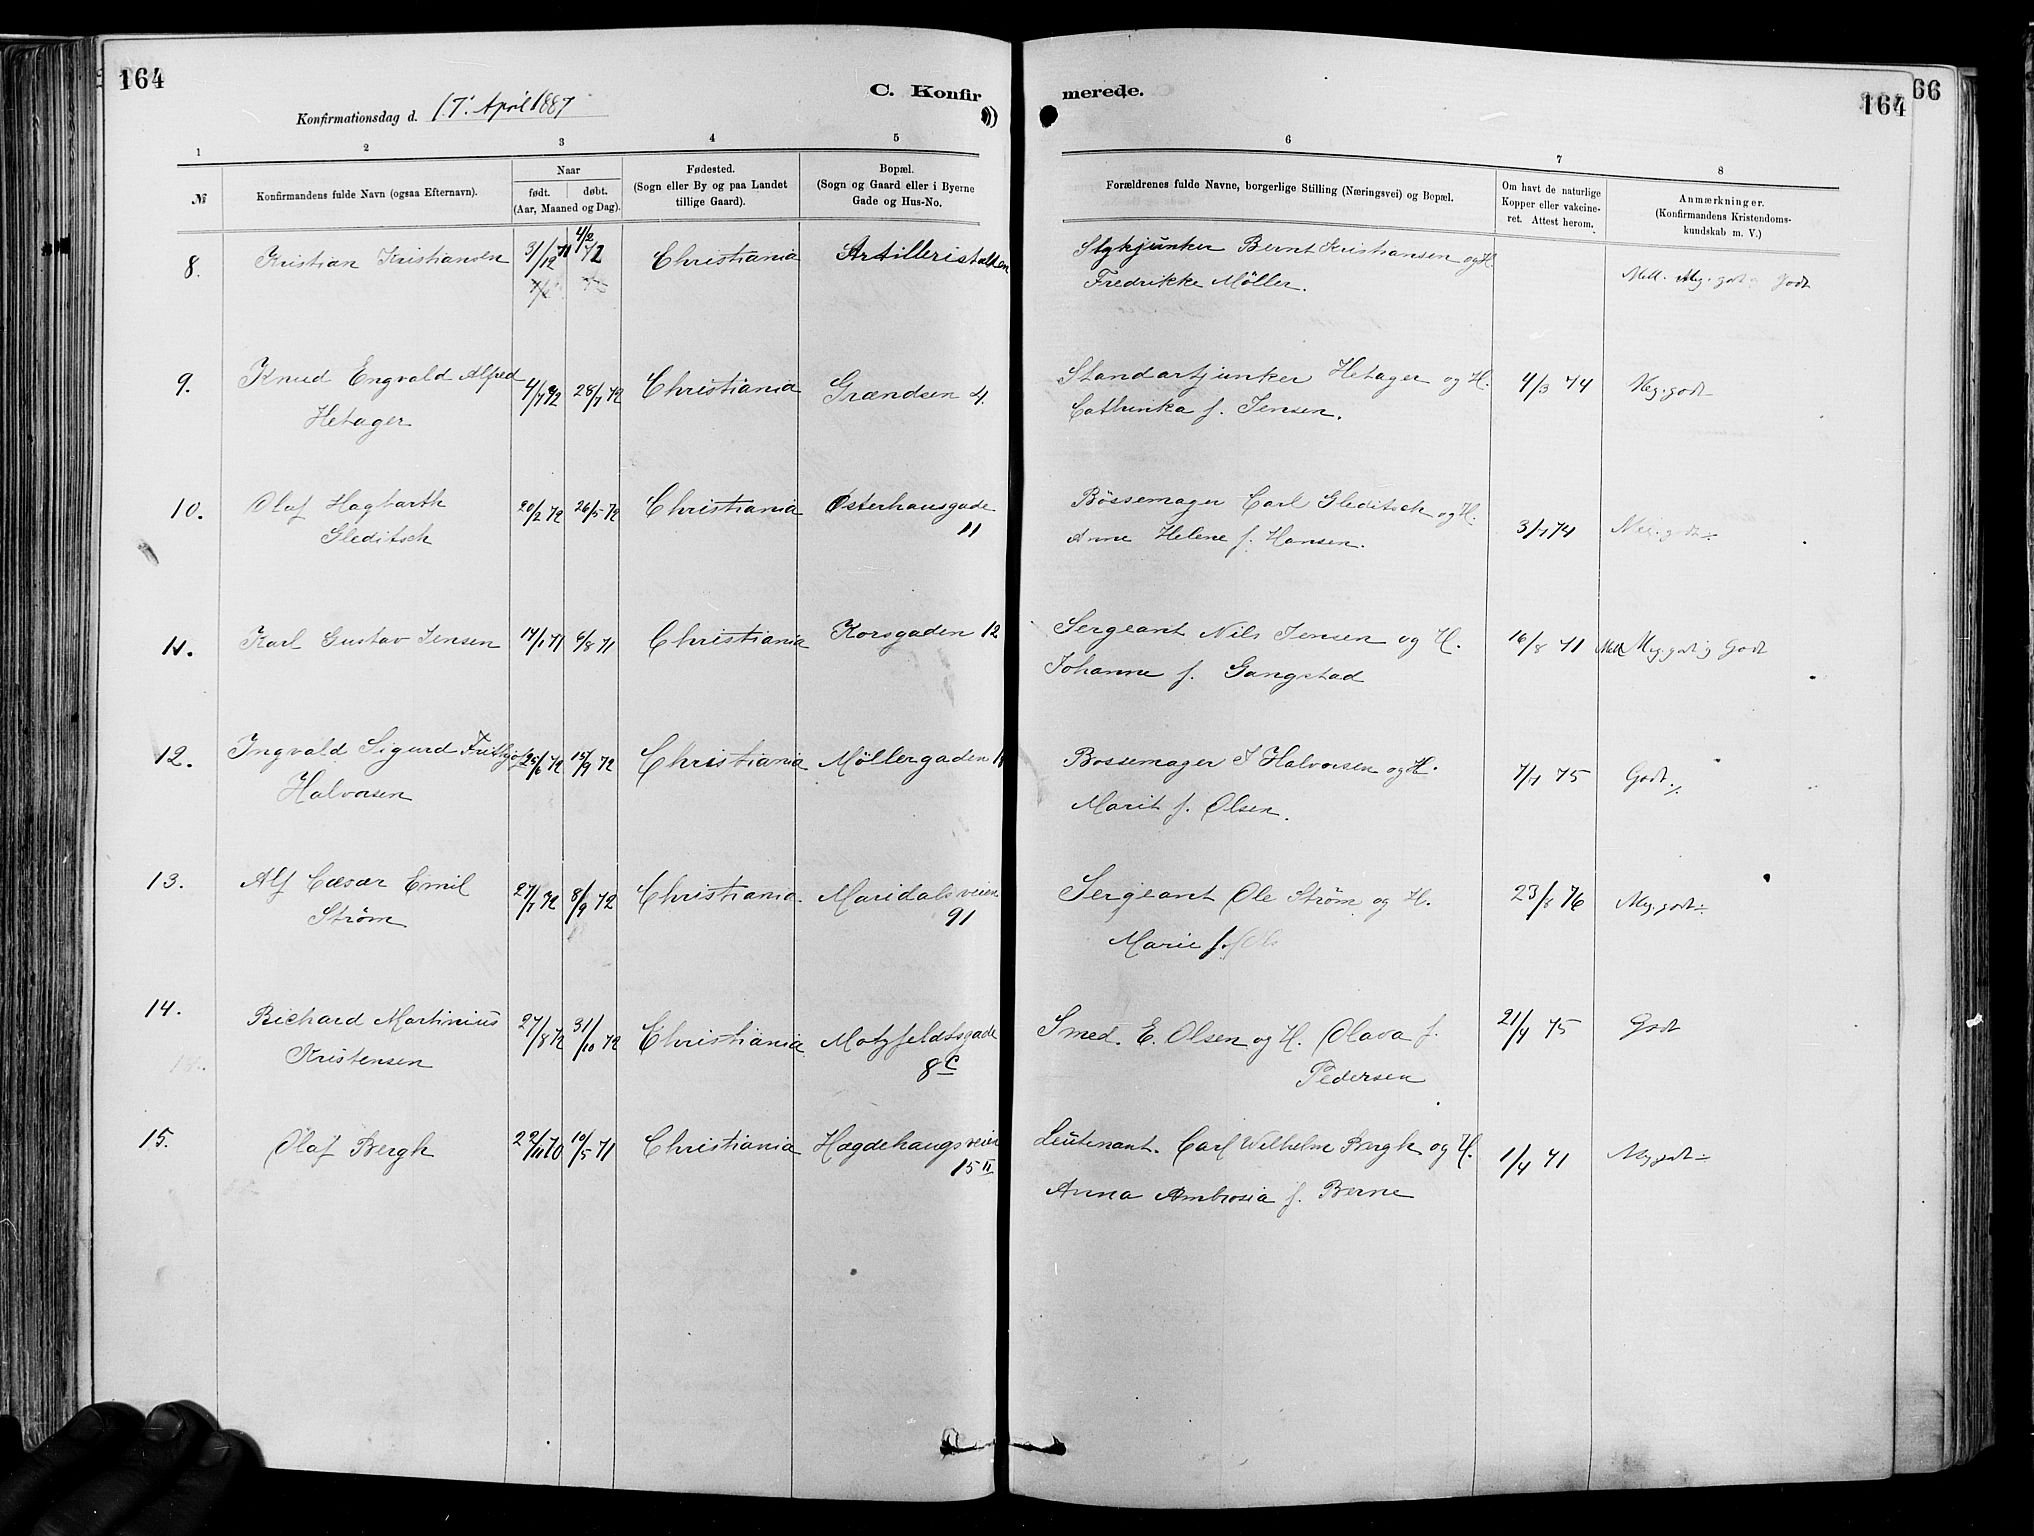 164
C. Konfir
merede.
164
66
Konfirmationsdag d. 17. April 1887
1 2 3 4 5 6 7 8
№
Konfirmandens fulde Navn (ogsaa Efternavn).
Naar
født. døbt.
(Aar, Maaned og Dag).
Fødested.
(Sogn eller By og paa Landet
tillige Gaard).
Bopæl.
(Sogn og Gaard eller i Byerne
Gade og Hus-No.
Forældrenes fulde Navne, borgerlige Stilling (Næringsvei) og Bopæl.
Om havt de naturlige
Kopper eller vakcine-
ret. Attest herom.
Anmærkninger.
(Konfirmandens Kristendoms-
kundskab m. V.)
8. Kristian Kristiansen 31/12 71 4/2 72 Christiania Artilleristalden Stykjunker Bernt Kristiansen og H. Mell. Meg. godt og Godt
Fredrikke Möller.
9. Knud Engvald Alfred 4/4 72 28/7 72 Christiania Grændsen 4. Standartjunker Hetager og H. 4/3 74 Meg. godt
Hetager Cathinka f. Jensen.
10. Olaf Hagbarth 20/2 72 26/5 72 Christiania Osterhausgade Bössemager Carl Gleditsch og H. 3/7 74 Meg. godt ÷
Gleditsch 11 Anne Helene f. Hansen.
11. Karl Gustav Jensen 14/1 71 6/8 71 Christiania Korsgaden 12 Sergeant Nils Jensen og H. 16/8 71 Mell Meg. godt og Godt
Johanne f. Gangstad
12. Ingvald Sigurd Frithjof 25/6 72 15/9 72 Christiania Möllergaden Bossemager J Halvorsen og H. 7/7 75 Godt ÷
Halvorsen Marit f. Olsen.
13. Alf Cæsar Emil 27/1 72 8/9 72 Christiania. Maridalsveien Sergeant Ole Strøm og H. 23/8 76 Meg. godt ÷
Strøm 91 Marie f.
14. Richard Martinius 27/8 72 31/10 72 Christiania Motzfeldtsgade Smed. E. Olsen og H. Olava f. 21/4 75 Godt
Kristensen 8c Pedersen
15. Olaf Bergh 22/11 70 10/5 71 Christiania Hægdehaugsveien Leutenant. Carl Wilhelm Bergh og H. 1/4 71 Meg godt ÷
15 II Anna Ambrosia f. Berne